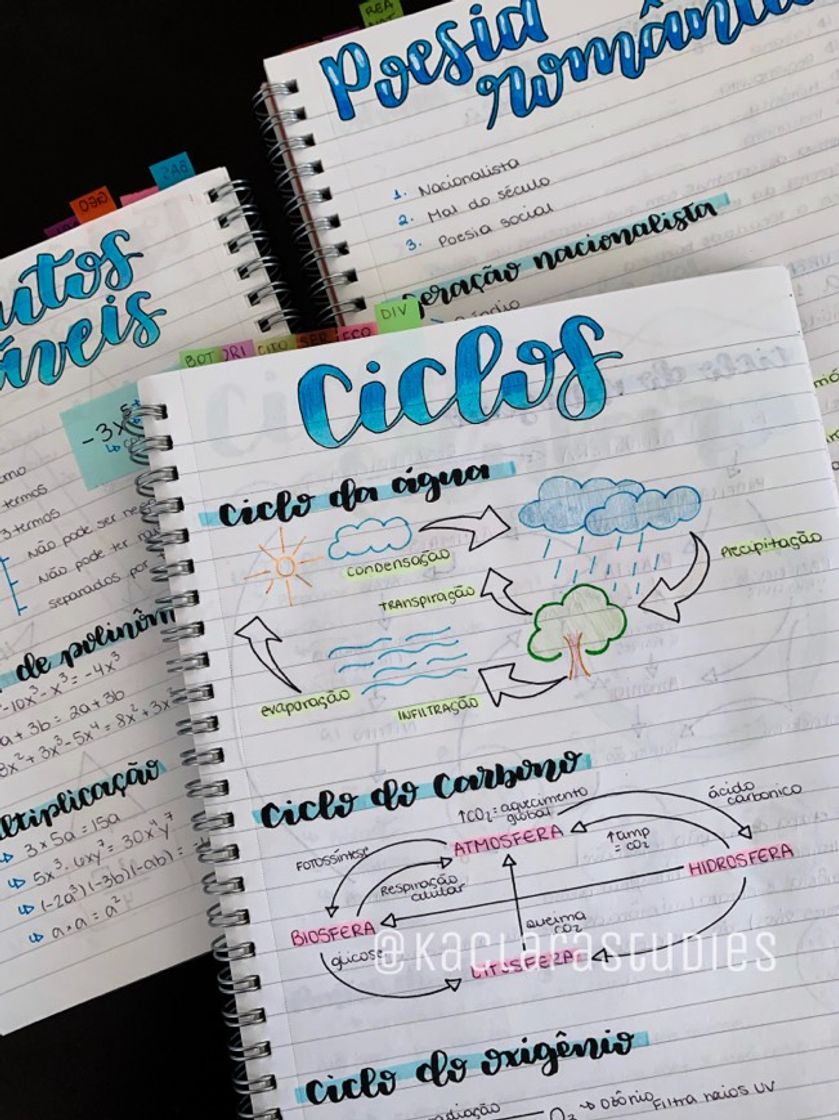 REA
Poesia
1. Nacionalista
2. Mal do século
3. Poesia social
geração nacionalista
SAB
GEO
-3x
termos
3 termos
Não pode ser
Não pode ter
separados por
de polinôm
-10x³-x³=-4x³
a+3b = 2a+3b
8x²+3x³-5x⁴=8x²+3x
ltiplicação
↳ 3×5a=15a
↳ 5x³·6xy⁷=30x⁴y⁷
↳ (-2a³)(-3b)(-ab)=
↳ a×a=a²
BOT
CITO
SER
ECO
DIV
Ciclos
Ciclo da água
condensação
Precipitação
TRANSPIRAÇÃO
evaporação
INFILTRAÇÃO
Ciclo do Carbono
↑CO₂=aquecimento
global
ácido
carbonico
ATMOSFERA
↑amp
=CO₂
FOTOSSÍntese
HIDROSFERA
Respiração
celular
BIOSFERA
queima
CO₂
glicose
LITOSFERA
@KACLARASTUDIES
Ciclo do oxigênio
O₂ → Ozônio Filtra raios UV